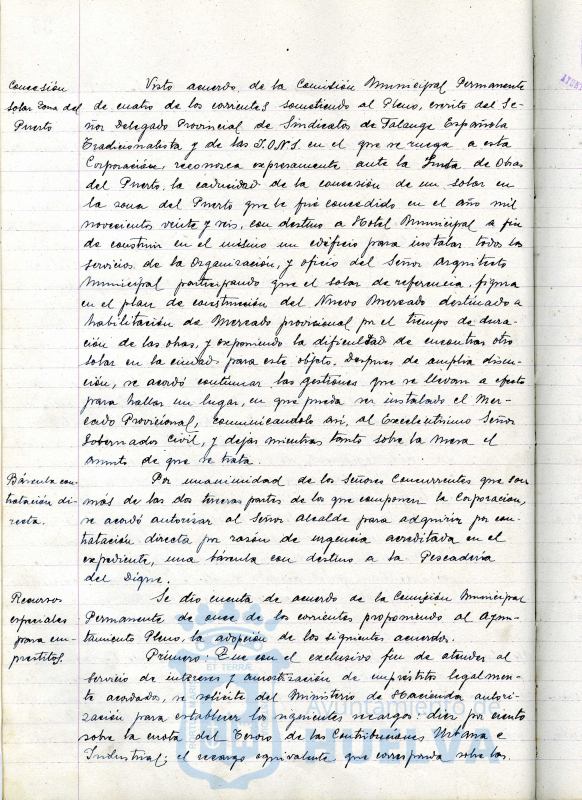 Concesión
solar Zona del
Puerto
Visto acuerdo, de la Comisión Municipal Permanente
de cuatro de los corrientes sometiendo al Pleno, escrito del Se-
ñor Delegado Provincial de Sindicatos de Falange Española
Tradicionalista y de las J.O.N.S. en el que se ruega a esta
Corporación, reconozca expresamente ante la Junta de Obras
del Puerto, la caducidad de la concesión de un solar en
la zona del Puerto que le fué concedido en el año mil
novecientos veinte y seis, con destino a Hotel Municipal a fin
de construir en el mismo un edificio para instalar todos los
servicios de la Organización, y oficio del Señor Arquitecto
Municipal participando que el solar de referencia, figura
en el plan de construcción del Nuevo Mercado destinado a
habilitación de Mercado provisional por el tiempo de dura-
ción de las obras, y exponiendo la dificultad de encontrar otro
solar en la ciudad para este objeto. Despues de amplia discu-
ción, se acordó continuar las gestiones que se llevan a efecto
para hallar un lugar, en que pueda ser instalado el Mer-
cado Provisional, comunicandolo asi, al Excelentisimo Señor
Gobernador Civil, y dejar mientras tanto sobre la mesa el
asunto de que se trata.
Báscula con-
tratación di-
recta.
Por unanimidad de los Señores Concurrentes que son
más de las dos terceras partes de los que componen la Corporación,
se acordó autorizar al Señor Alcalde para adquirir por con-
tratación directa por razón de urgencia acreditada en el
expediente, una báscula con destino a la Pescadería
del Dique.
Recursos
especiales
para em-
prestitos.
Se dio cuenta de acuerdo de la Comisión Municipal
Permanente de once de los corrientes proponiendo al Ayun-
tamiento Pleno, la adopción de los siguientes acuerdos.
Primero: Que con el exclusivo fin de atender al
servicio de intereses y amortización de empréstitos legalmen-
te acordados, se solicite del Ministerio de Hacienda autori-
zación para establecer los siguientes recargos: diez por ciento
sobre la cuota del Tesoro de las Contribuciones Urbana e
Industrial; el recargo equivalente que corresponda sobre las
Ayuntamiento de
HUELVA